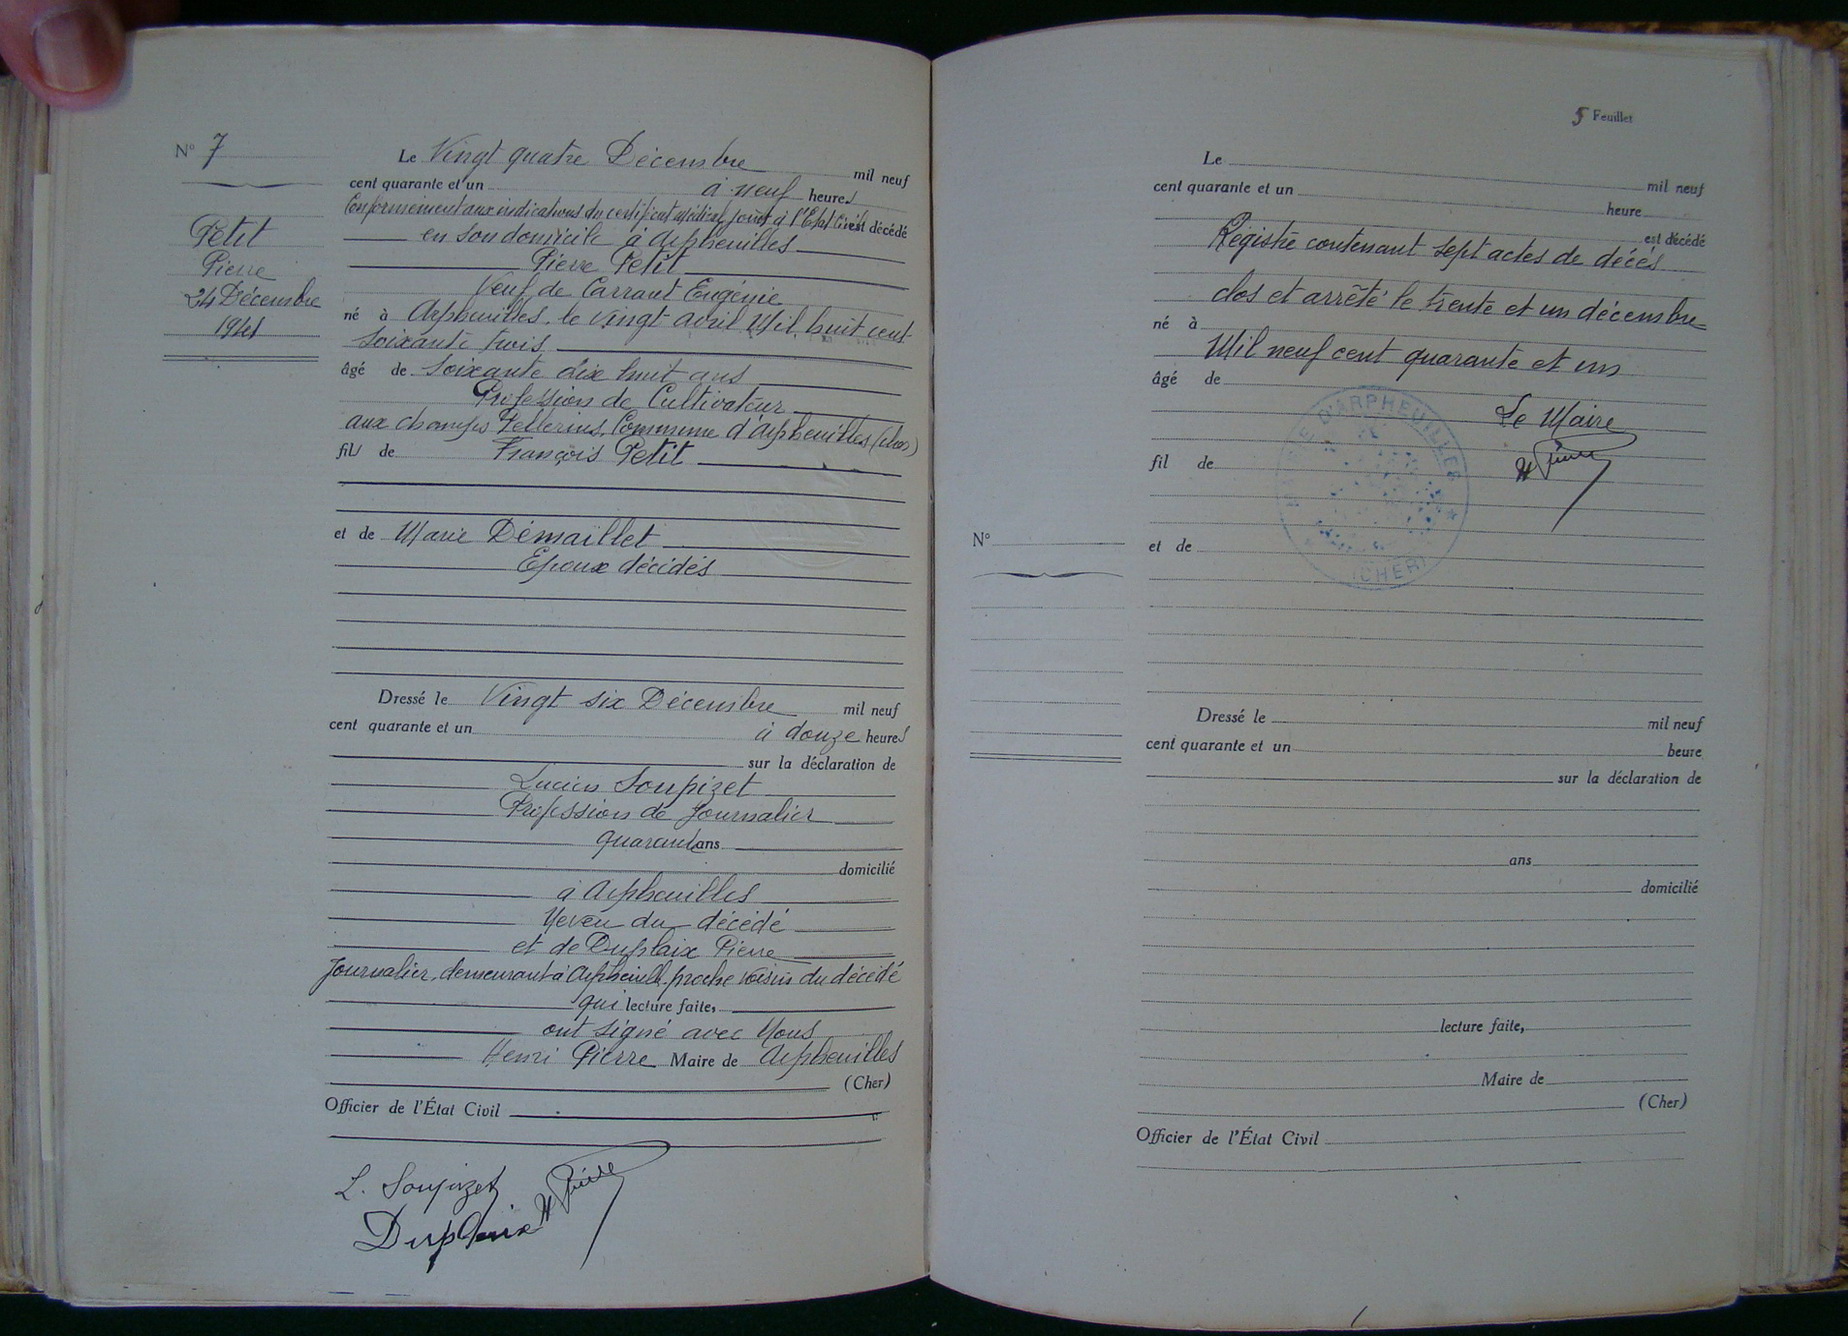 N° 7
Petit
Pierre
24 Décembre
1941
Le Vingt quatre Décembre mil neuf
cent quarante et un à neuf heures
Conformément aux indications du certificat médical joint à l'Etat Civil est décédé
en son domicile à Arpheuilles
Pierre Petit
Veuf de Carraut Eugénie
né à Arpheuilles, le vingt avril Mil huit cent
soixante trois
âgé de Soixante dix huit ans
Profession de Cultivateur
aux champs Commune d'Arpheuilles (cher)
fils de François Petit
et de Marie Démaillet
Epoux décédés
Dressé le Vingt six Décembre mil neuf
cent quarante et un à douze heures
sur la déclaration de
Lucien Soupizet
Profession de Journalier
quarante ans
domicilié
à Arpheuilles
Neveu du décédé
et de Duplaix Pierre
Journalier, demeurant à Arpheuilles proche voisin du décédé
qui lecture faite,
ont signé avec Nous
Henri Pierre Maire de Arpheuilles
(Cher)
Officier de l'État Civil
L. Soupizet
Duplaix
H Pierre
5 Feuillet
Le mil neuf
cent quarante et un
heure
est décédé
Registre contenant sept actes de décès
clos et arrêté le trente et un décembre
né à
Mil neuf cent quarante et un
âgé de
Le Maire
H Pierre
fil de
MAIRIE D'ARPHEUILLES
(CHER)
N°
et de
Dressé le mil neuf
cent quarante et un heure
sur la déclaration de
ans
domicilié
lecture faite,
Maire de
(Cher)
Officier de l'État Civil